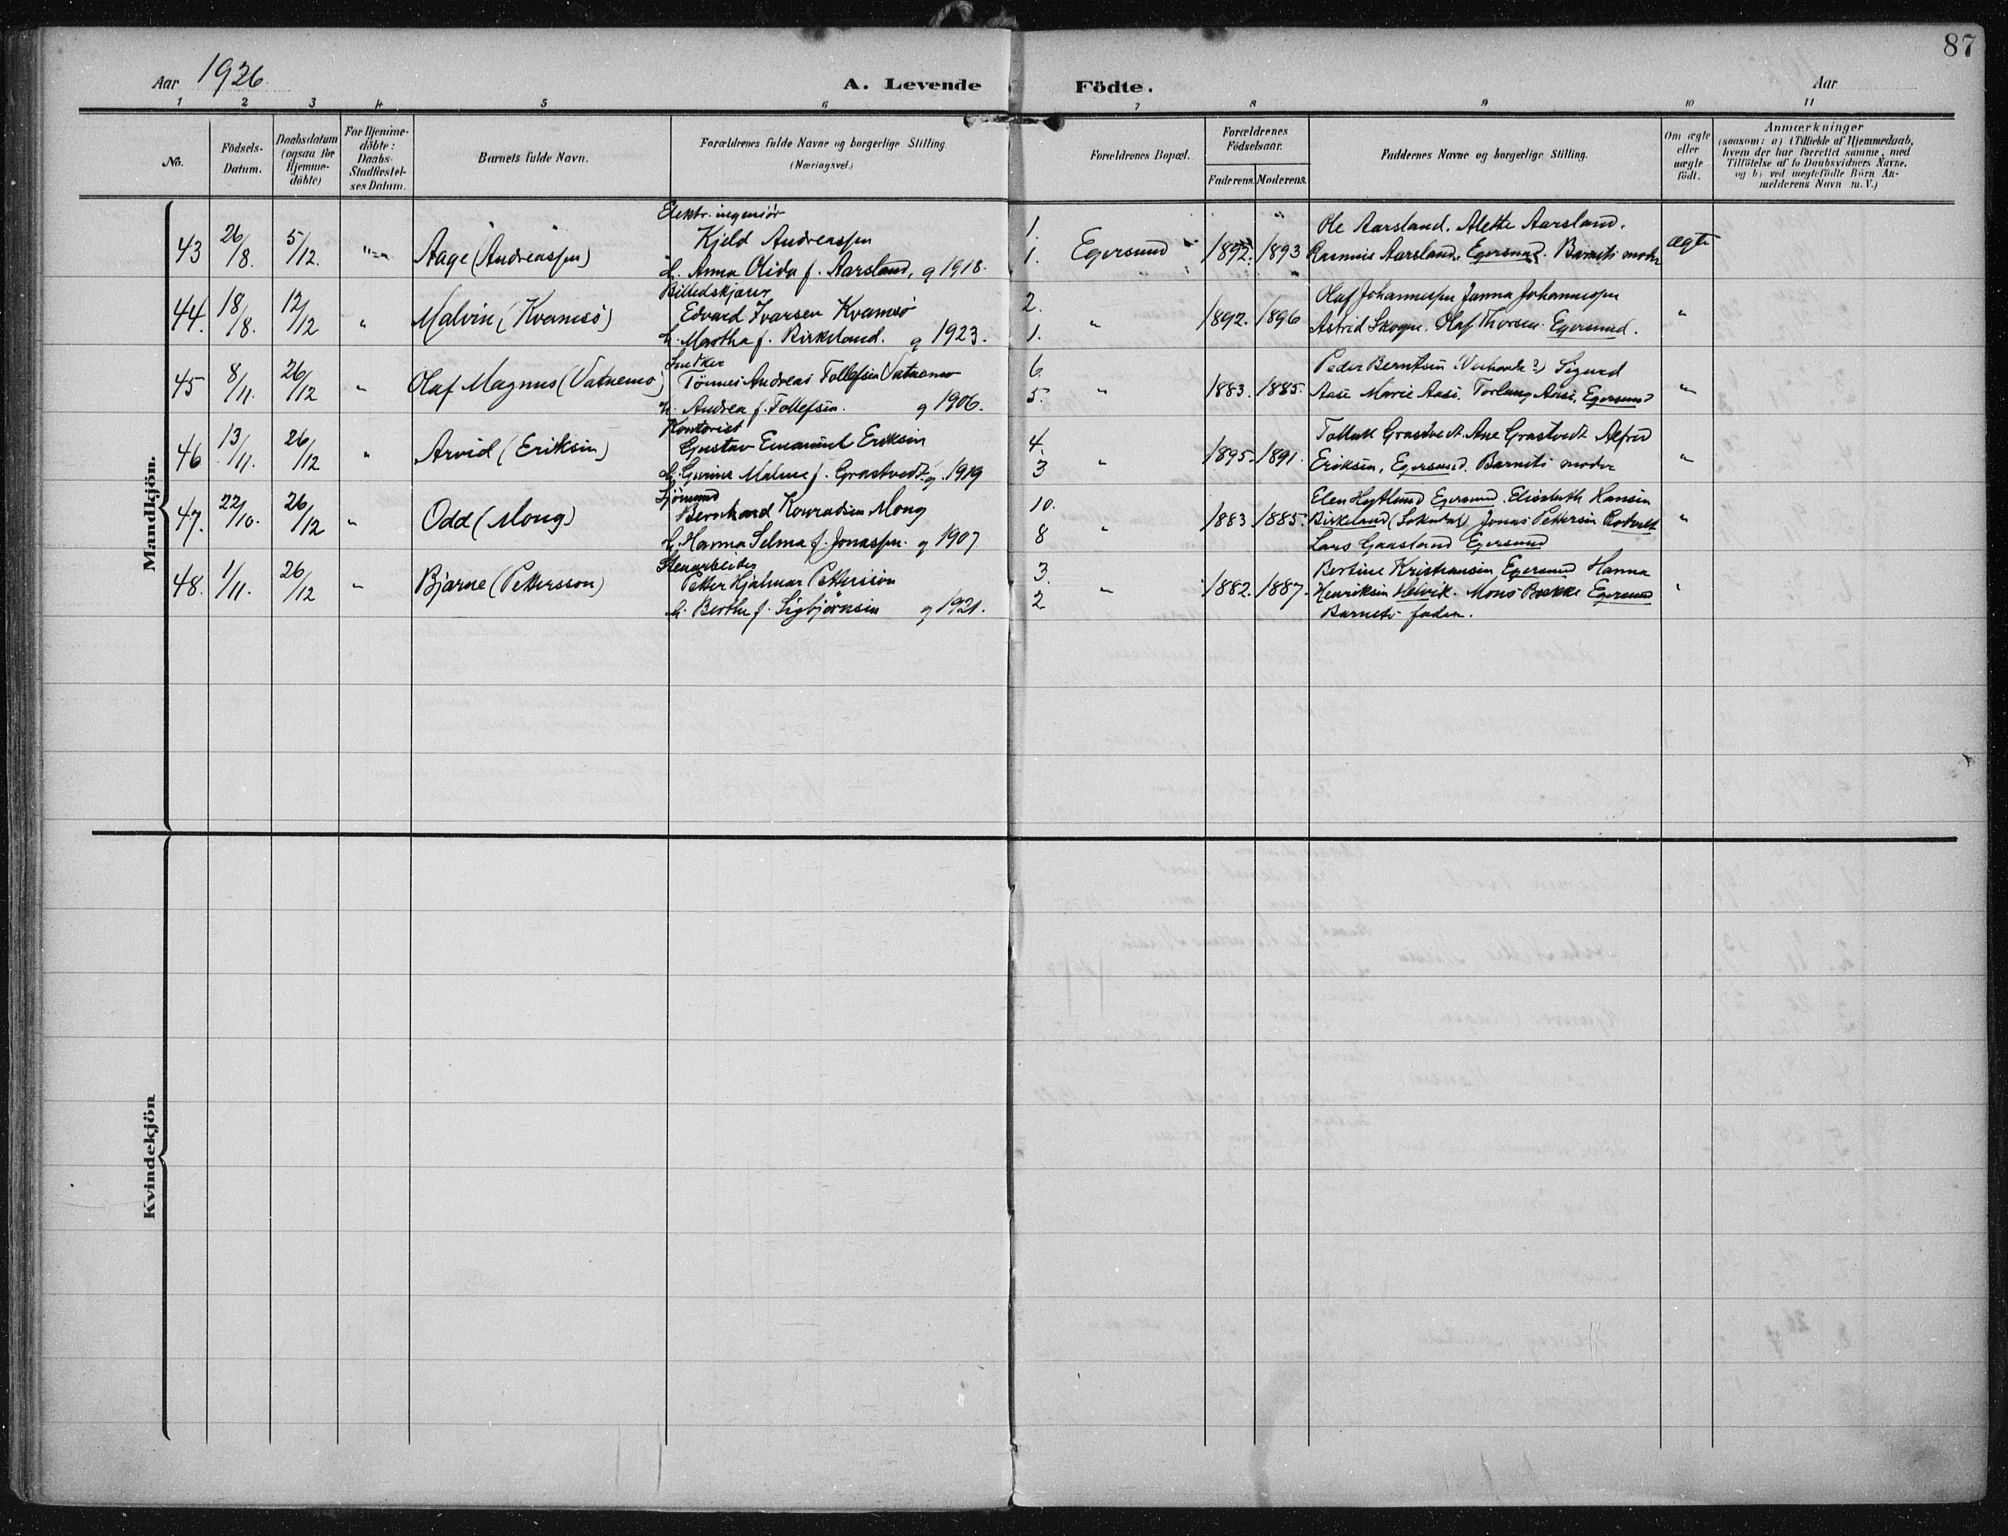 87
Aar 1926.
A. Levende Födte.
Aar
1 2 3 4 5 6 7 8 9 10 11
No.
Födsels-Datum.
Daabsdatum (ogsaa for Hjemme-döbte)
For Hjemme-döbte: Daabs-Stadfæstel-ses Datum.
Barnets fulde Navn.
Forældrenes fulde Navne og borgerlige Stilling. (Næringsvei.)
Forældrenes Bopæl.
Forældrenes Födselsaar.
Faderens. Moderens.
Faddernes Navne og borgerlige Stilling.
Om ægte eller uægte födt.
Anmærkninger
(saasom: a) i Tilfælde af Hjemmedaab,
hvem der har forrettet samme, med
Tilföielse af to Daabsvidners Navne,
og b) ved uegtefödte Börn An-
melderens Navn m. V.)
Mandkjön.
43 26/8. 5/12. "-" Aage (Andreassen)
Elektr. ingeniör
Kjeld Andreassen
h. Anna Olida f. Aarsland, g 1918.
1. 1. Egersund 1892. 1893
Ole Aarsland. Alette Aarsland.
Rasmine Aarsland. Egersund. Barnets moder
ægte
44. 18/8. 12/12 " Malvin (Kvamsö)
Billedskjærer
Edvard Ivarsen Kvamsö
h. Martha f. Birkeland. g 1923.
2. 1. " 1892. 1896
Olaf Johannessen Janna Johannessen
Astrid Skogne. Olaf Thorsen. Egersund.
"
45 8/11. 26/12 " Olaf Magnus (Vatnemo)
Snedker
Tönnes Andreas Tollefsen Vatnemo
h. Andrea f. Tollefsen. g 1906.
6. 5. " 1883. 1885.
Peder Berntsen Sigurd
Aase Marie Aase. Torlaug Aase. Egersund
"
46 13/11. 26/12 " Arvid (Eriksen)
Kontorist
Gustav Emanuel Eriksen
h. Gurine Malene f. Grastvedt. g. 1919
4. 3 " 1895. 1891.
Tollak Grastvedt. Ane Grastvedt Alfred
Eriksen, Egersund. Barnets moder
"
47. 22/10. 26/12 " Odd (Mong)
Sjömand
Bernhard Konradsen Mong
h. Hanna Selma f. Jonassen. g 1907
10. 8 " 1883 1885.
Elen Hytland Egersund. Elisabeth Hansen
Birkeland (Sokndal) Jonas Pettersen
Lars Gaasland Egersund
"
48. 1/11. 26/12 " Bjarne (Pettersson)
Stenarbeider
Petter Hjalmar Pettersson
h. Berthe f. Sigbjörnsen g 1921.
3. 2 " 1882. 1887.
Bertine Kristiansen Egersund Hanna
Henriksen Helvik. Mons Bakke Egersund
Barnets fader.
"
Kvindekjön